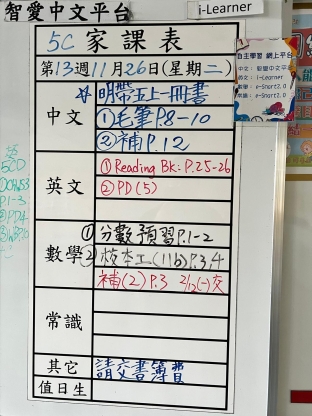 智愛中文平台
i-Learner
5C 家課表
第13週11月26日(星期二)
中文
☆明帶五上一冊書
①毛筆P.8-10
②補P.12
英文
①Reading Bk: P.25-26
②PD(5)
數學
①分數預習P.1-2
②校本工(11b)P.3,4
補(2)P.3 2/12(一)交
常識
其它
請交書簿費
值日生
自主學習 網上平台
中文：智愛中文平台
英文：i-Learner
數學：e-Smart2.0
常識：e-Smart2.0
英
5CD
P.1-3
②PD4